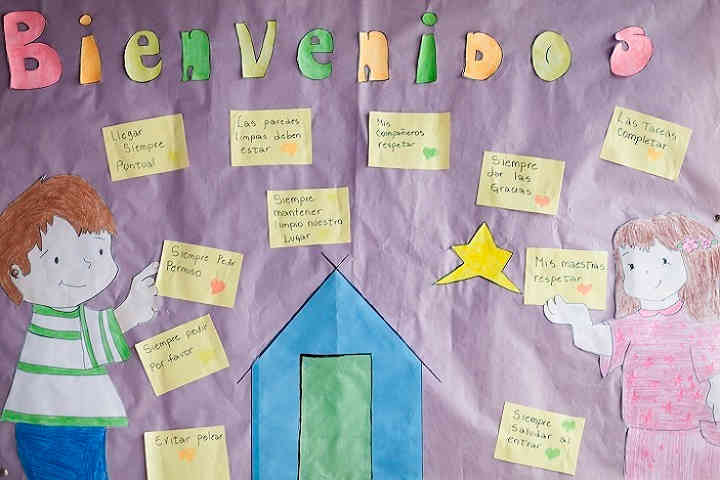 Bienvenidos
Llegar
Siempre
Puntual
Las paredes
limpias deben
estar
Mis
Compañeros
respetar
Siempre
dar las
Gracias
Las Tareas
Completar
Siempre
mantener
limpio nuestro
Lugar
Siempre Pedir
Permiso
Mis maestras
respetar
Siempre pedir
Por favor
Evitar pelear
Siempre
Saludar al
entrar